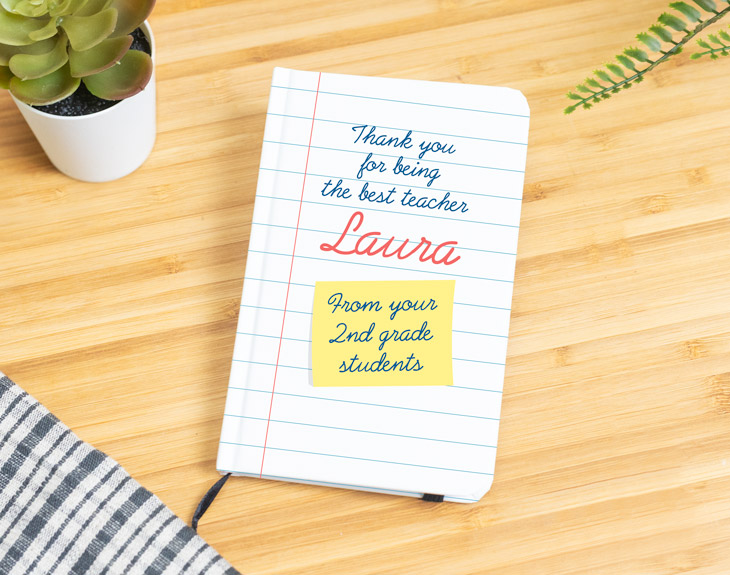 Thank you
for being
the best teacher
Laura
From your
2nd grade
students